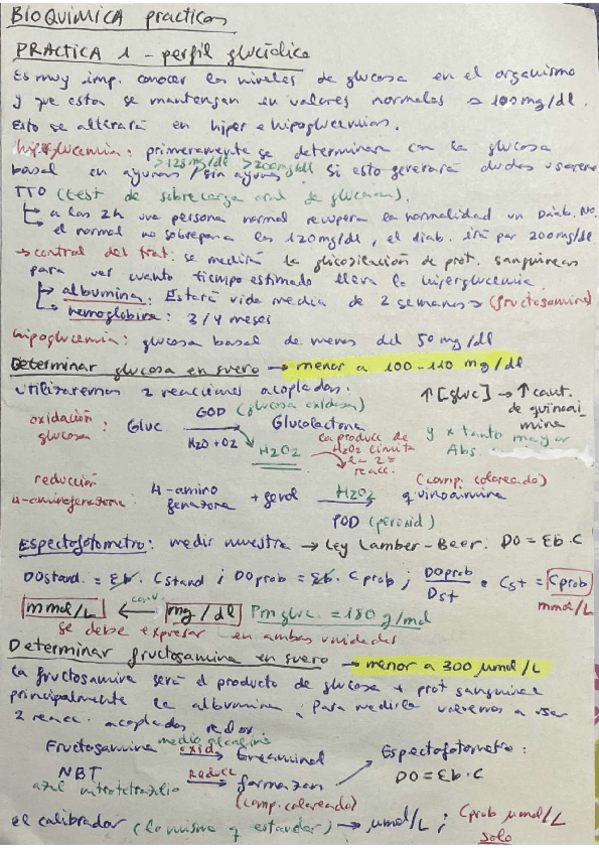 BIOQUIMICA practicas
PRACTICA 1 - perfil glucídico
Es muy imp. conocer los niveles de glucosa en el organismo
y que estos se mantengan en valores normales → 100 mg/dl.
Esto se alterará en hiper e hipoglucemias.
hiperglucemia: primeramente se determinara con la glucosa
>126 mg/dl >200 mg/dl
basal en ayunas / sin ayunas. Si esto generará dudas usaremos
TTO (test de sobrecarga oral de glucosa).
→ a las 2h una persona normal recupera la normalidad un Diab. No.
→ el normal no sobrepasa los 120 mg/dl, el diab. irá por 200 mg/dl
→ control del trat: se medirá la glicosilación de prot. sanguineas
para ver cuanto tiempo estimado lleva la hiperglucemia
→ albumina: Estará vida media de 2 semanas → (fructosamina)
→ hemoglobina: 3/4 meses
hipoglucemia: glucosa basal de menos del 50 mg/dl
Determinar glucosa en suero → menor a 100-110 mg/dl
utilizaremos 2 reacciones acopladas.
↑[gluc] → ↑ cant. de quinoaimina y x tanto mayor Abs.
oxidación glucosa: Gluc GOD (glucosa oxidasa) → Glucolactona
H2O + O2 H2O2 la produce de H2O2 limita la 2ª reacc.
reducción 4-aminofenazona: 4-amino fenazona + fenol H2O2 → quinoaimina (comp. coloreado)
POD (peroxid)
Espectofotometro: medir muestra → Ley Lamber-Beer. DO = Eb·C
DOstand. = Eb. Cstand ; DOprob = Eb. Cprob ; DOprob / Dst · Cst = Cprob
mmol/L ← conv. mg/dl Pm gluc. = 180 g/mol mmol/L
se debe expresar en ambas unidades
Determinar fructosamina en suero → menor a 300 µmol/L
la fructosamina será el producto de glucosa + prot sanguinea
principalmente la albumina; Para medirla volvemos a usar
2 reacc. acopladas redox
Fructosamina medio alcalino oxid → Eneaminol
Espectofotometro:
NBT Reducc → formazan DO = Eb·C
azul nitrotetrazolio (comp. coloreado)
el calibrador (lo mismo q estandar) → µmol/L ; Cprob µmol/L
solo